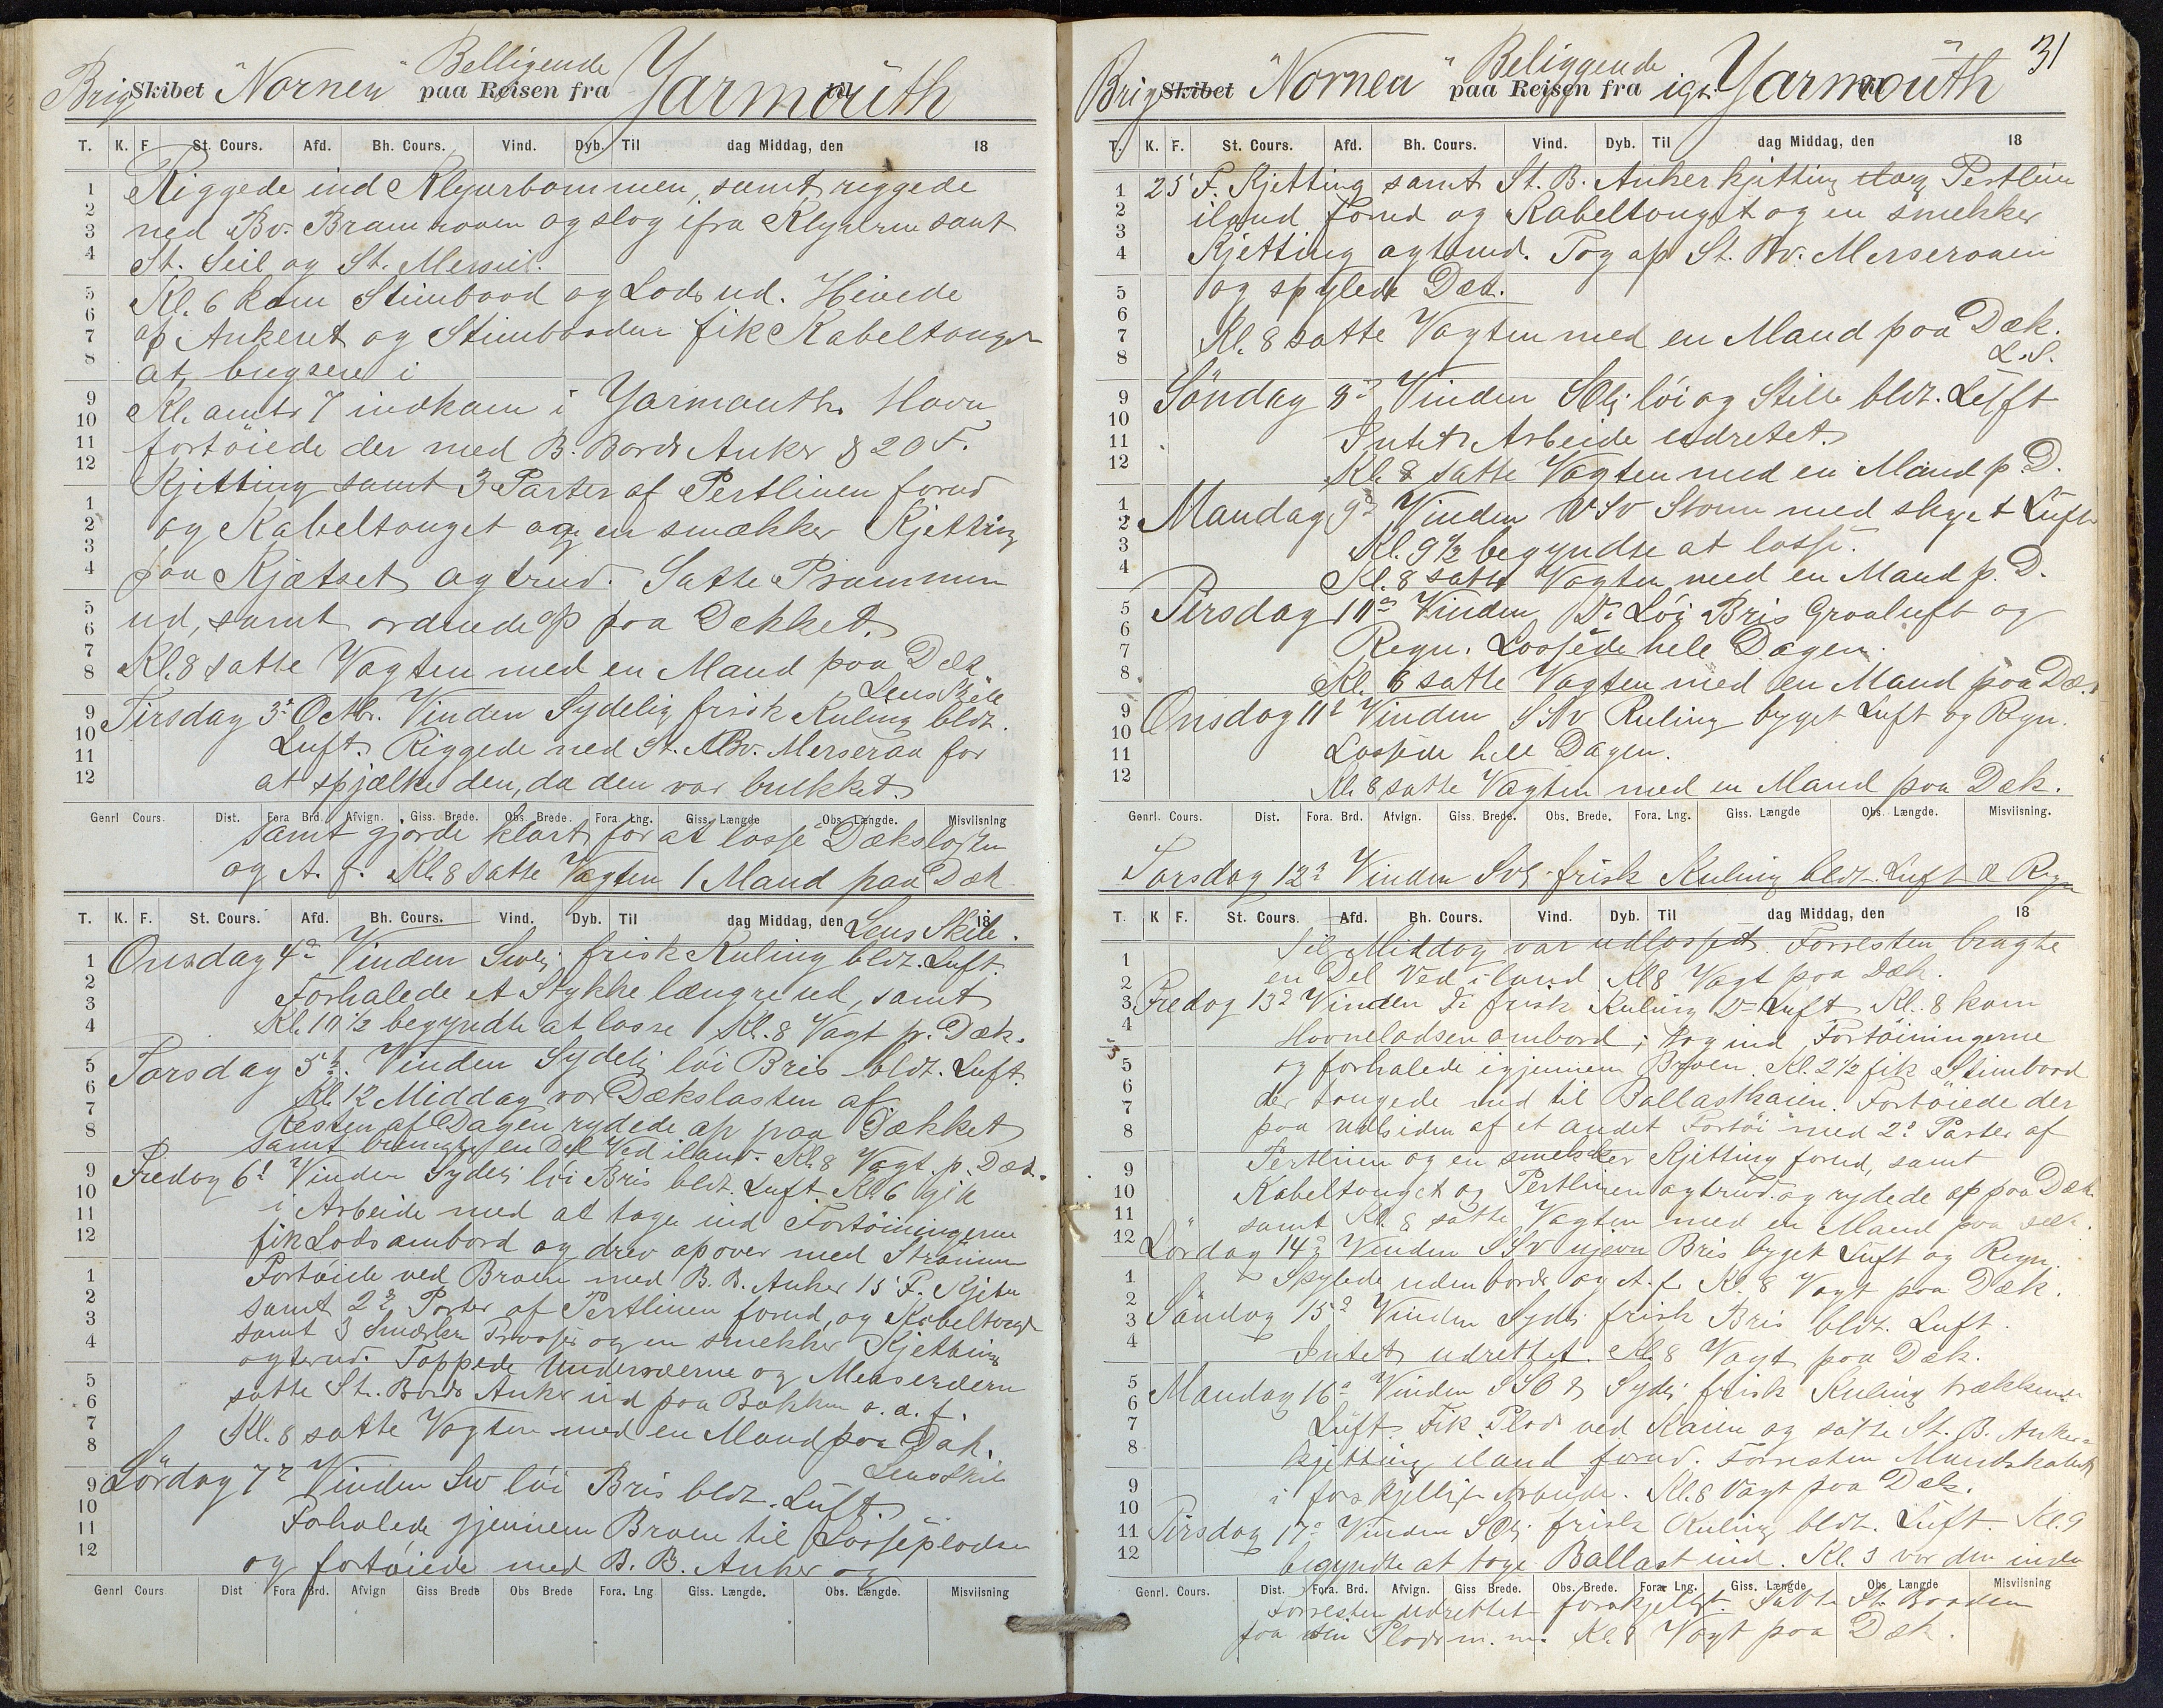 Brig Skibet "Nornen" Belligende paa Reisen fra Yarmouth til
T. K. F. St. Cours. Afd. Bh. Cours. Vind. Dyb. Til dag Middag, den 18
Riggede ind Klyverbommen, samt riggede
ned Bv. Bramraaen og slog ifra Klyveren samt
St. Seil og St. Mersseil.
Kl. 6 kom Stimbaad og Lods ud. Hivede
op Ankeret og Stimbaaden fik Kabeltouget
at bugsere i
Kl. amtr 7 indkom i Yarmouth Havn
fortöiede der med B. Bords Anker & 20 F.
Kjetting samt 3 Parter af Pertlinen forud
og Kabeltouget og en smækker Kjetting
paa Kjætset agterud. Satte Prammen
ud, samt ordnede op paa Dekket.
Kl. 8 satte Vagten med en Mand paa Dæk
Lens Skile
Tirsdag 3die Octbr. Vinden Sydelig frisk Kuling bldt.
Luft. Riggede ned St. Bv. Merseraa for
at spjælke den, da den var brækket
Genrl Cours. Dist. Fora Brd. Afvign. Giss. Brede. Obs. Brede. Fora Lng. Giss. Længde Obs. Længde. Misvisning
samt gjorde klart for at losse Dækslasten
og A. f. Kl. 8 satte Vagten 1 Mand paa Dæk
T. K. F. St. Cours. Afd. Bh. Cours. Vind. Dyb. Til dag Middag, den 18
Lens Skile.
Onsdag 4de Vinden Svlig frisk Kuling bldt. Luft.
Forhalede et Stykke længre ud, samt
Kl. 10 1/2 begyndte at losse Kl. 8 Vagt p. Dæk.
Torsdag 5te. Vinden Sydelig löi Bris bldt. Luft.
Kl. 12 Middag var Dækslasten af
Resten af Dagen rydede op paa Dækket
samt bragte en Del Ved iland. Kl. 8 Vagt. p. Dæk.
Fredag 6te Vinden Sydelig löi Bris bldt. Luft. Kl. 6 gik
i Arbeide med at tage ind Fortöiningerne
fik Lods ombord og drev opover med Strömmen
Fortöiede ved Broen med B. B. Anker 15 F. Kjetting
samt 2de Parter af Pertlinen forud, og Kabeltouget
samt 3 Smækre og en smekker Kjetting
agterud. Toppede Underræerne og Merseræern
satte St. Bords Anker ud paa Bakken o. a. f.
Kl. 8 satte Vagten med en Mand paa Dæk.
Lens Skile
Lördag 7de Vinden Sv löi Bris bldt. Luft
Forhalede gjennem Broen til Lossepladsen
og fortöiede med B. B. Anker og
Genrl Cours Dist Fora Brd. Afvign Giss Brede Obs Brede Fora. Lng Giss. Længde. Obs. Længde. Misvisning
31
Brig Skibet "Nornen" Beliggende paa Reisen fra igt. Yarmouth til
T. K. F. St. Cours. Afd. Bh. Cours. Vind. Dyb. Til dag Middag, den 18
25 F. Kjetting samt St. B. Ankerkjetting Pertline
iland forud og Kabeltouget og en smekker
Kjetting agterud. Tog op St. Bv. Merseraaen
og spylede Dæk.
Kl. 8 satte Vagten med en Mand paa Dæk.
L. S.
Söndag 8de Vinden SOlig löi og Stille bldt. Luft
Intet Arbeide udrettet.
Kl. 8 satte Vagten med en Mand p D.
Mandag 9de Vinden VSV Storm med skyet Luft
Kl. 9 1/2 begyndte at losse.
Kl. 8 satte Vagten med en Mand p. D.
Tirsdag 10de Vinden Do Löi Bris Graaluft og
Regn. Lossede hele Dagen.
Kl. 8 satte Vagten med en Mand paa Dæk.
Onsdag 11te Vinden SSv Kuling byget Luft og Regn.
Lossede hele Dagen.
Kl. 8 satte Vagten med en Mand paa Dæk.
Genrl. Cours. Dist. Fora. Brd. Afvign. Giss. Brede. Obs. Brede. Fora. Lng. Giss. Længde Obs. Længde. Misvisning.
Torsdag 12te Vinden Svlig frisk Kuling bldt. Luft & Regn
T. K F. St. Cours. Afd. Bh. Cours. Vind. Dyb. Til dag Middag, den 18
Til Middag var udlosset. Forresten bragte
en Del Ved iland. Kl 8 Vagt paa Dæk.
Fredag 13de Vinden Do frisk Kuling Do Luft Kl. 8 kom
Havnelodsen ombord, tog ind Fortöiningerne
og forhalede igjennem Broen. Kl. 2 1/2 fik Stimbaad
der tougede ned til Ballastkaien. Fortöiede der
paa Udsiden af et andet Fartöi med 2de Parter af
Pertlinen og en smekker Kjetting forud, samt
Kabeltouget og Pertlinen agterud. og rydede op paa Dæk
samt Kl. 8 satte Vagten med en Mand paa Dæk.
Lördag 14de Vinden SSv ujevn Bris byget Luft og Regn.
Spylede udenbords og A. f. Kl. 8 Vagt paa Dæk.
Söndag 15de Vinden Sydlig frisk Bris bldt. Luft.
Intet udrettet. Kl. 8 Vagt paa Dæk.
Mandag 16de Vinden SSO & Sydlig frisk Kuling trækkende
Luft. Fik Plads ved Kaien og satte St. B. Anker-
kjetting iland forud. Forresten Mandskabet
i forskjellige Arbeide. Kl. 8 Vagt paa Dæk.
Tirsdag 17de Vinden SOlig frisk Kuling bldt. Luft. Kl. 9
begyndte at tage Ballast ind. Kl. 3 var den inde
Genrl. Cours. Dist. Fora. Brd. Afvign. Giss Brede. Obs. Brede. Fora. Lng. Giss. Længde Obs. Længde Misvisning
Forresten udrettet forskjelligt. Satte St. Baaden
paa sin Plads m. m. Kl. 8 Vagt paa Dæk.